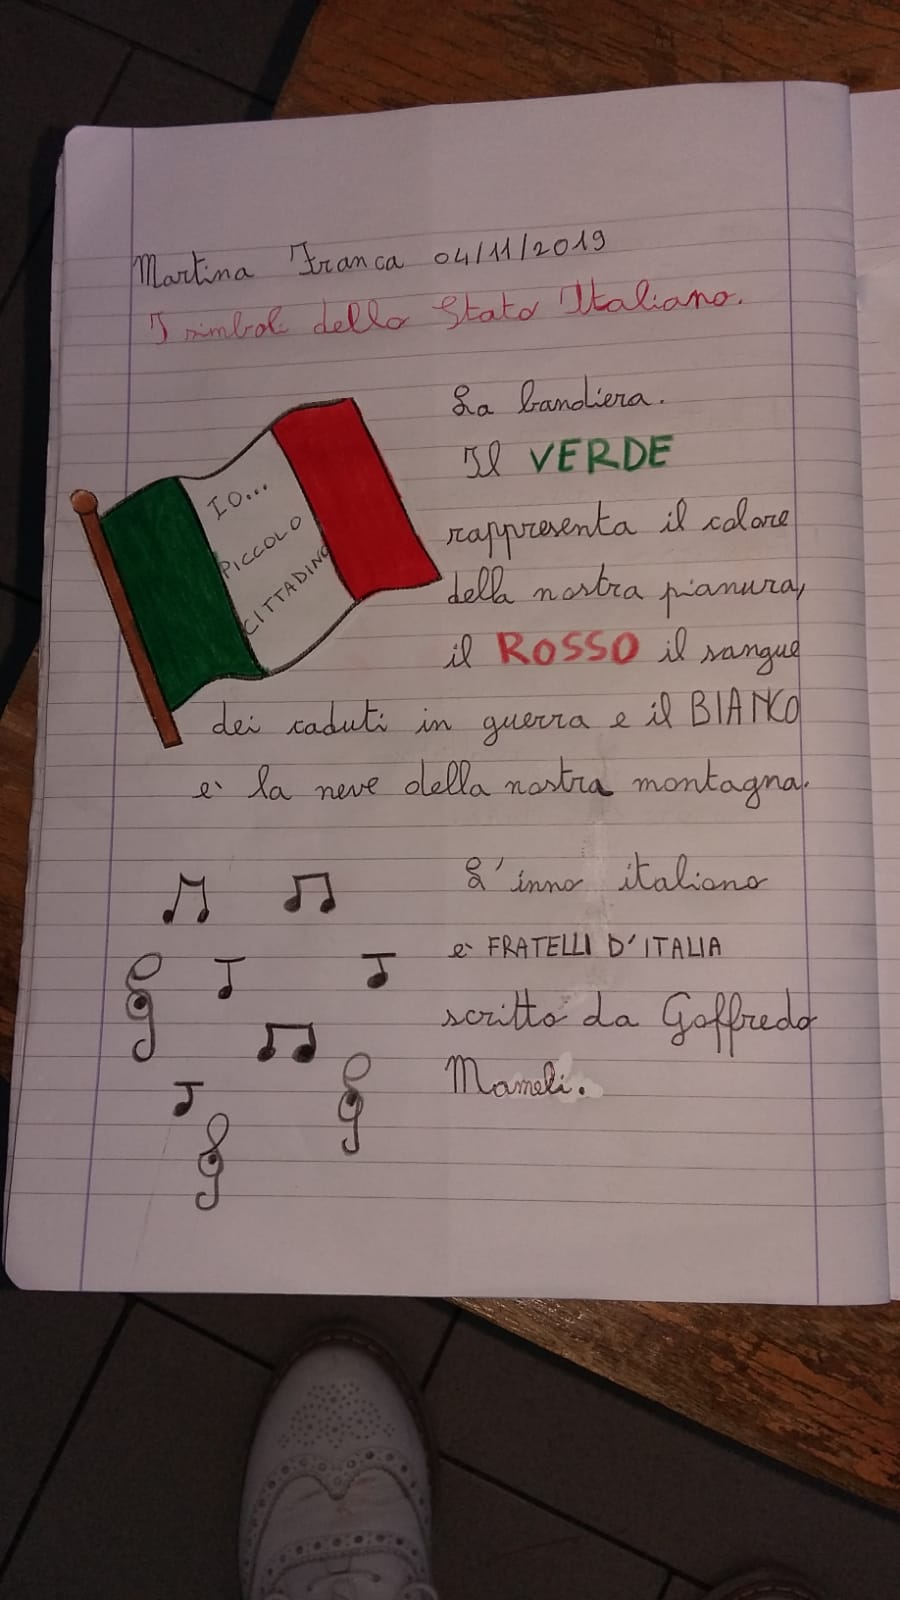 Martina Franca 04/11/2019
I simboli dello Stato Italiano.
La bandiera.
Il VERDE
rappresenta il colore
della nostra pianura,
il ROSSO il sangue
dei caduti in guerra e il BIANCO
è la neve della nostra montagna.
IO...
PICCOLO
CITTADINO
L'inno italiano
è FRATELLI D'ITALIA
scritto da Goffredo
Mameli.